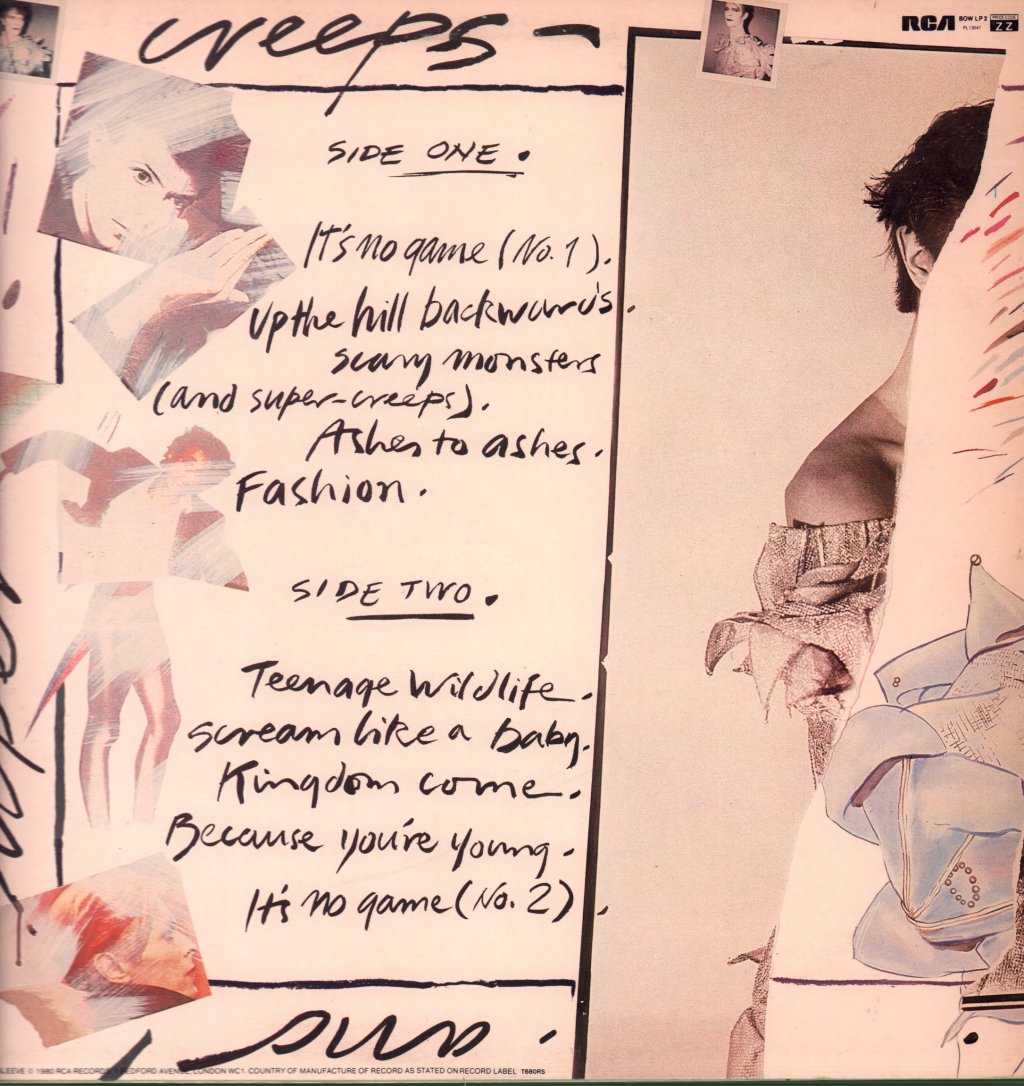 creeps -
RCA BOW LP 2
PL13647
ZZ
SIDE ONE.
It's no game (No. 1).
Up the hill backwards.
scary monsters
(and super-creeps).
Ashes to ashes.
Fashion.
SIDE TWO.
Teenage Wildlife.
scream like a baby.
Kingdom come.
Because you're young.
It's no game (No. 2).
super
and
SLEEVE © 1980 RCA RECORDS, 1 BEDFORD AVENUE, LONDON WC1. COUNTRY OF MANUFACTURE OF RECORD AS STATED ON RECORD LABEL T680RS